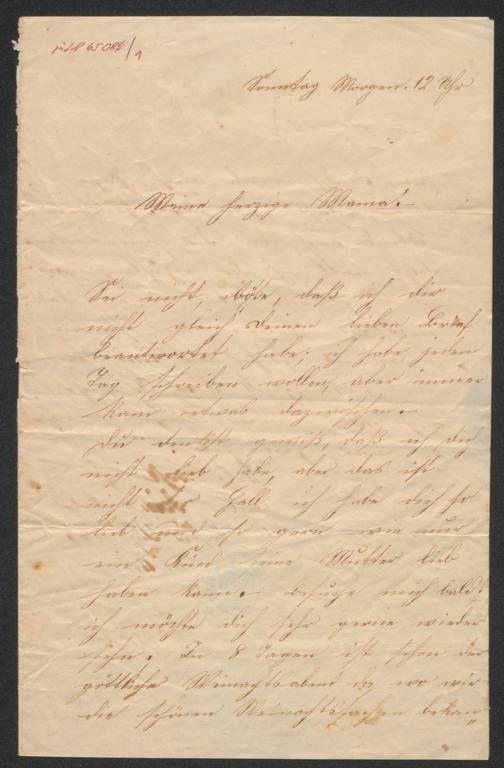 Sonntag Morgen. 12 Uhr
Meine herzige Mama! -
Sei nicht, böse, daß ich dir
nicht gleich Deinen lieben Brief
beantwortet habe; ich habe jeden
Tag schreiben wollen, aber immer
kam etwas dazwischen. -
Du denkst gewiß, daß ich dich
nicht lieb habe, aber das ist
nicht der Fall ich habe dich so
lieb und so gern wie nur
ein Kind seine Mutter lieb
haben kann. - besuche mich bald.
ich möchte dich sehr gerne wieder
sehn. In 8 Tagen ist schon der
göttliche Weinachtsabend da wo wir
die schönen Weinachtssachen bekom„